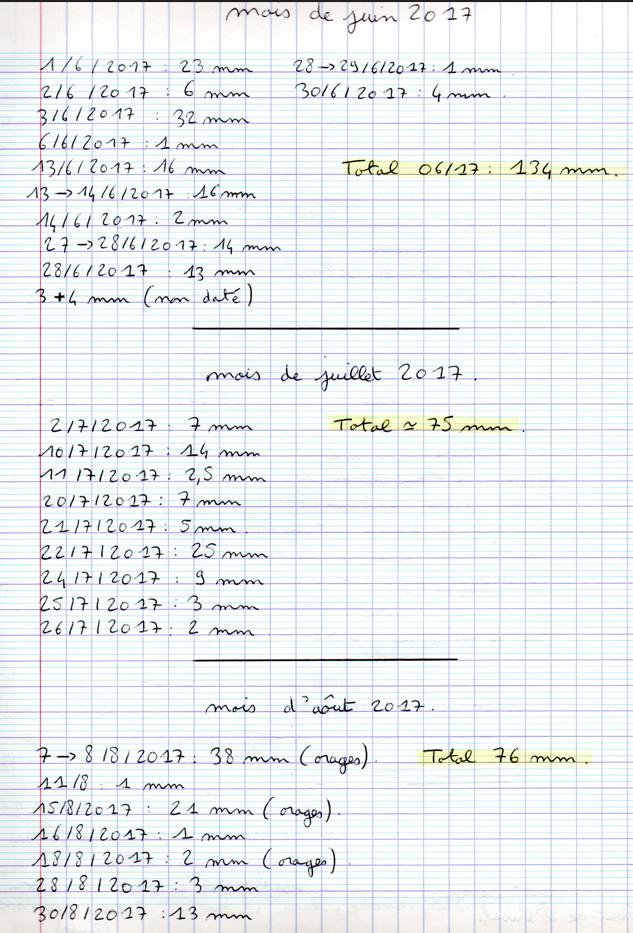 mois de juin 2017
1/6/2017 : 23 mm
2/6/2017 : 6 mm
3/6/2017 : 32 mm
6/6/2017 : 1 mm
13/6/2017 : 16 mm
13 → 14/6/2017 : 16 mm
14/6/2017 : 2 mm
27 → 28/6/2017 : 14 mm
28/6/2017 : 13 mm
3 + 4 mm (non daté)
28 → 29/6/2017 : 1 mm
30/6/2017 : 4 mm.
Total 06/17 : 134 mm.
mois de juillet 2017.
2/7/2017 : 7 mm
10/7/2017 : 14 mm
11/7/2017 : 2,5 mm
20/7/2017 : 7 mm
21/7/2017 : 5 mm.
22/7/2017 : 25 mm
24/7/2017 : 9 mm
25/7/2017 : 3 mm
26/7/2017 : 2 mm
Total ≃ 75 mm.
mois d'août 2017.
7 → 8/8/2017 : 38 mm (orages).
11/8 : 1 mm
15/8/2017 : 21 mm (orages).
16/8/2017 : 1 mm
18/8/2017 : 2 mm (orages).
28/8/2017 : 3 mm
30/8/2017 : 13 mm
Total 76 mm.